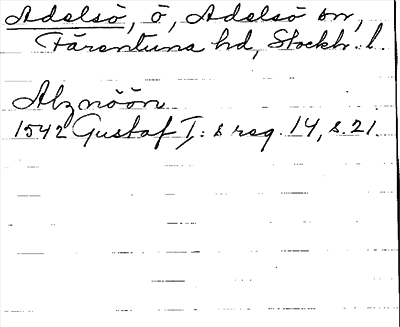 Adelsö, ö, Adelsö sn,
Färentuna hd, Stockh. l.
Alznöön
1542 Gustaf I:s reg. 14, s. 21.